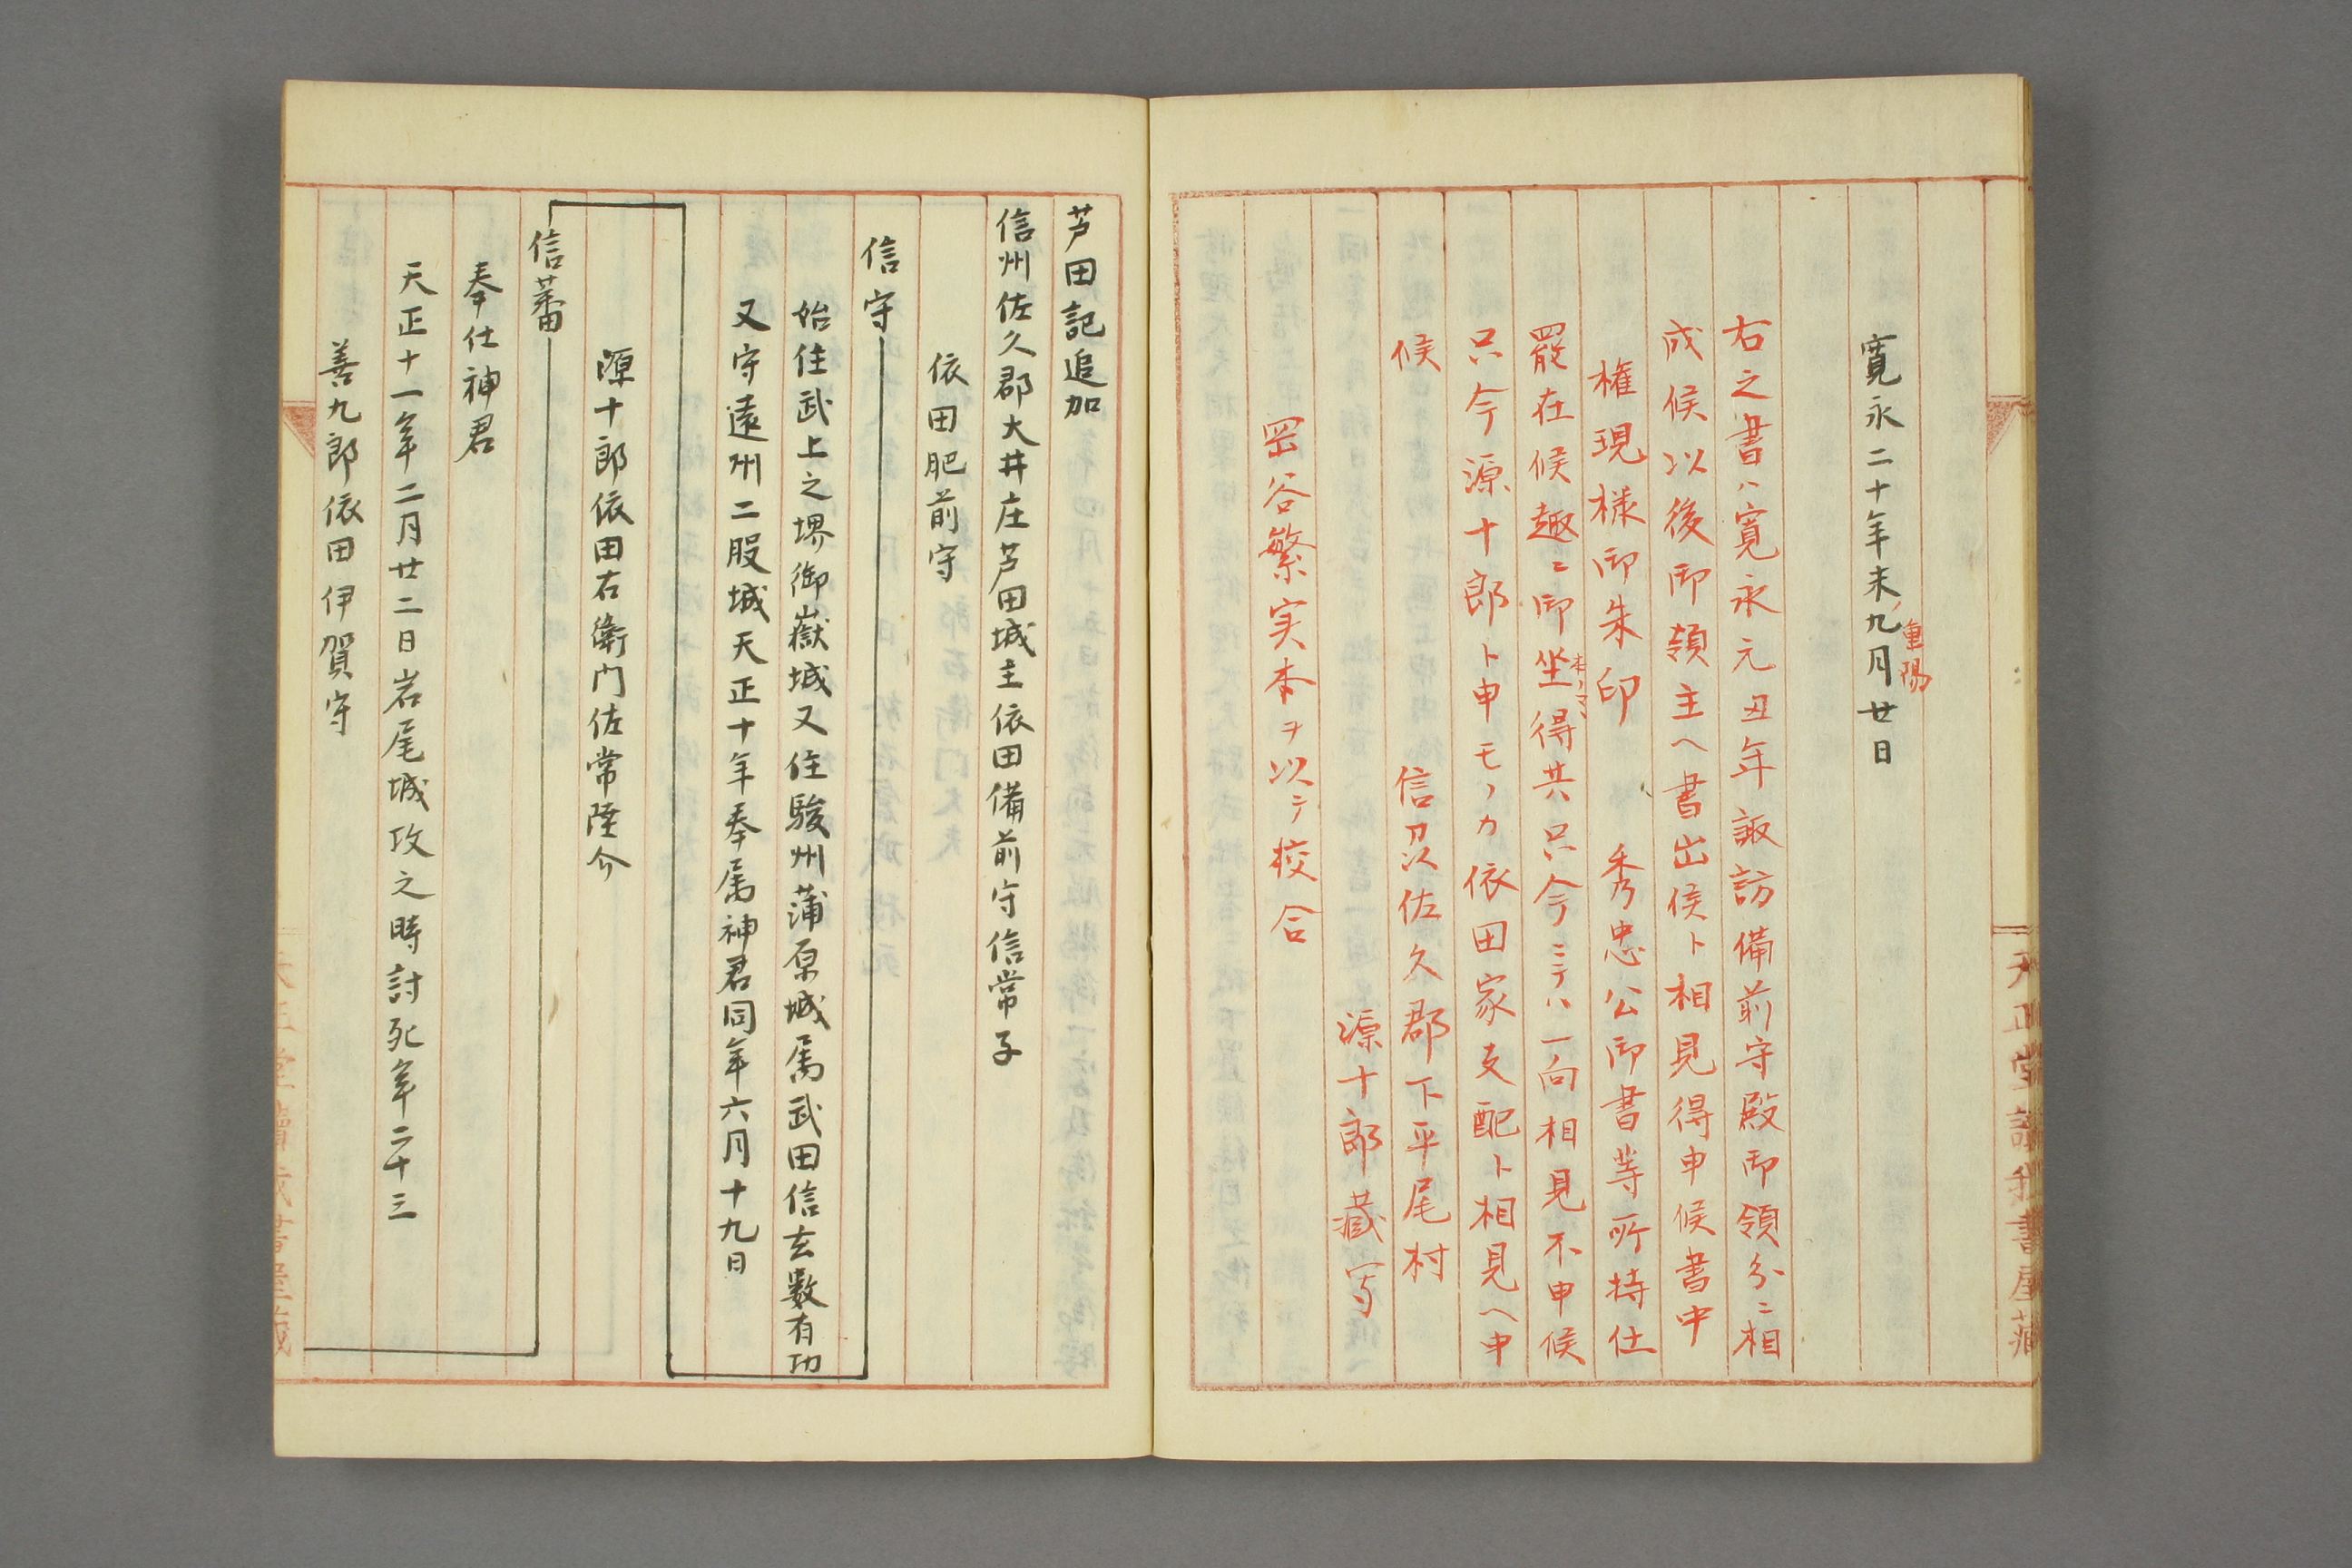 寛永二十年未九月廿日
重陽
右之書ハ寛永元丑年諏訪備前守殿御領分ニ相
成候以後御領主ヘ書出候ト相見得申候書中
権現様御朱印　秀忠公御書等所持仕
罷在候趣ニ御坐得共只今ニテハ一向相見不申候
本ノマヽ
只今源十郎ト申モノカ依田家支配ト相見ヘ申
候
信刕佐久郡下平尾村
源十郎蔵写
岡谷繁実本ヲ以テ校合
芦田記追加
信州佐久郡大井庄芦田城主依田備前守信常子
依田肥前守
信守
始住武上之堺御嶽城又住駿州蒲原城属武田信玄数有功
又守遠州二股城天正十年奉属神君同年六月十九日
源十郎依田右衛門佐常陸介
信蕃
奉仕神君
天正十一年二月廿二日岩尾城攻之時討死年二十三
善九郎依田伊賀守